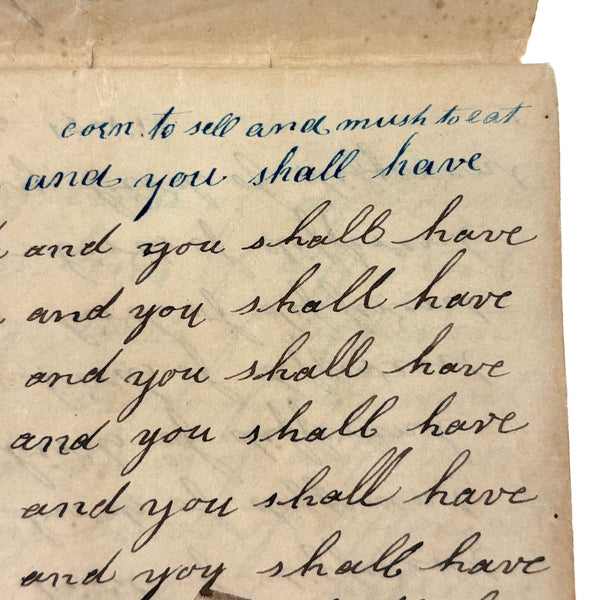 corn. to sell and mush to eat
and you shall have
and you shall have
and you shall have
and you shall have
and you shall have
and you shall have
and yoy shall have